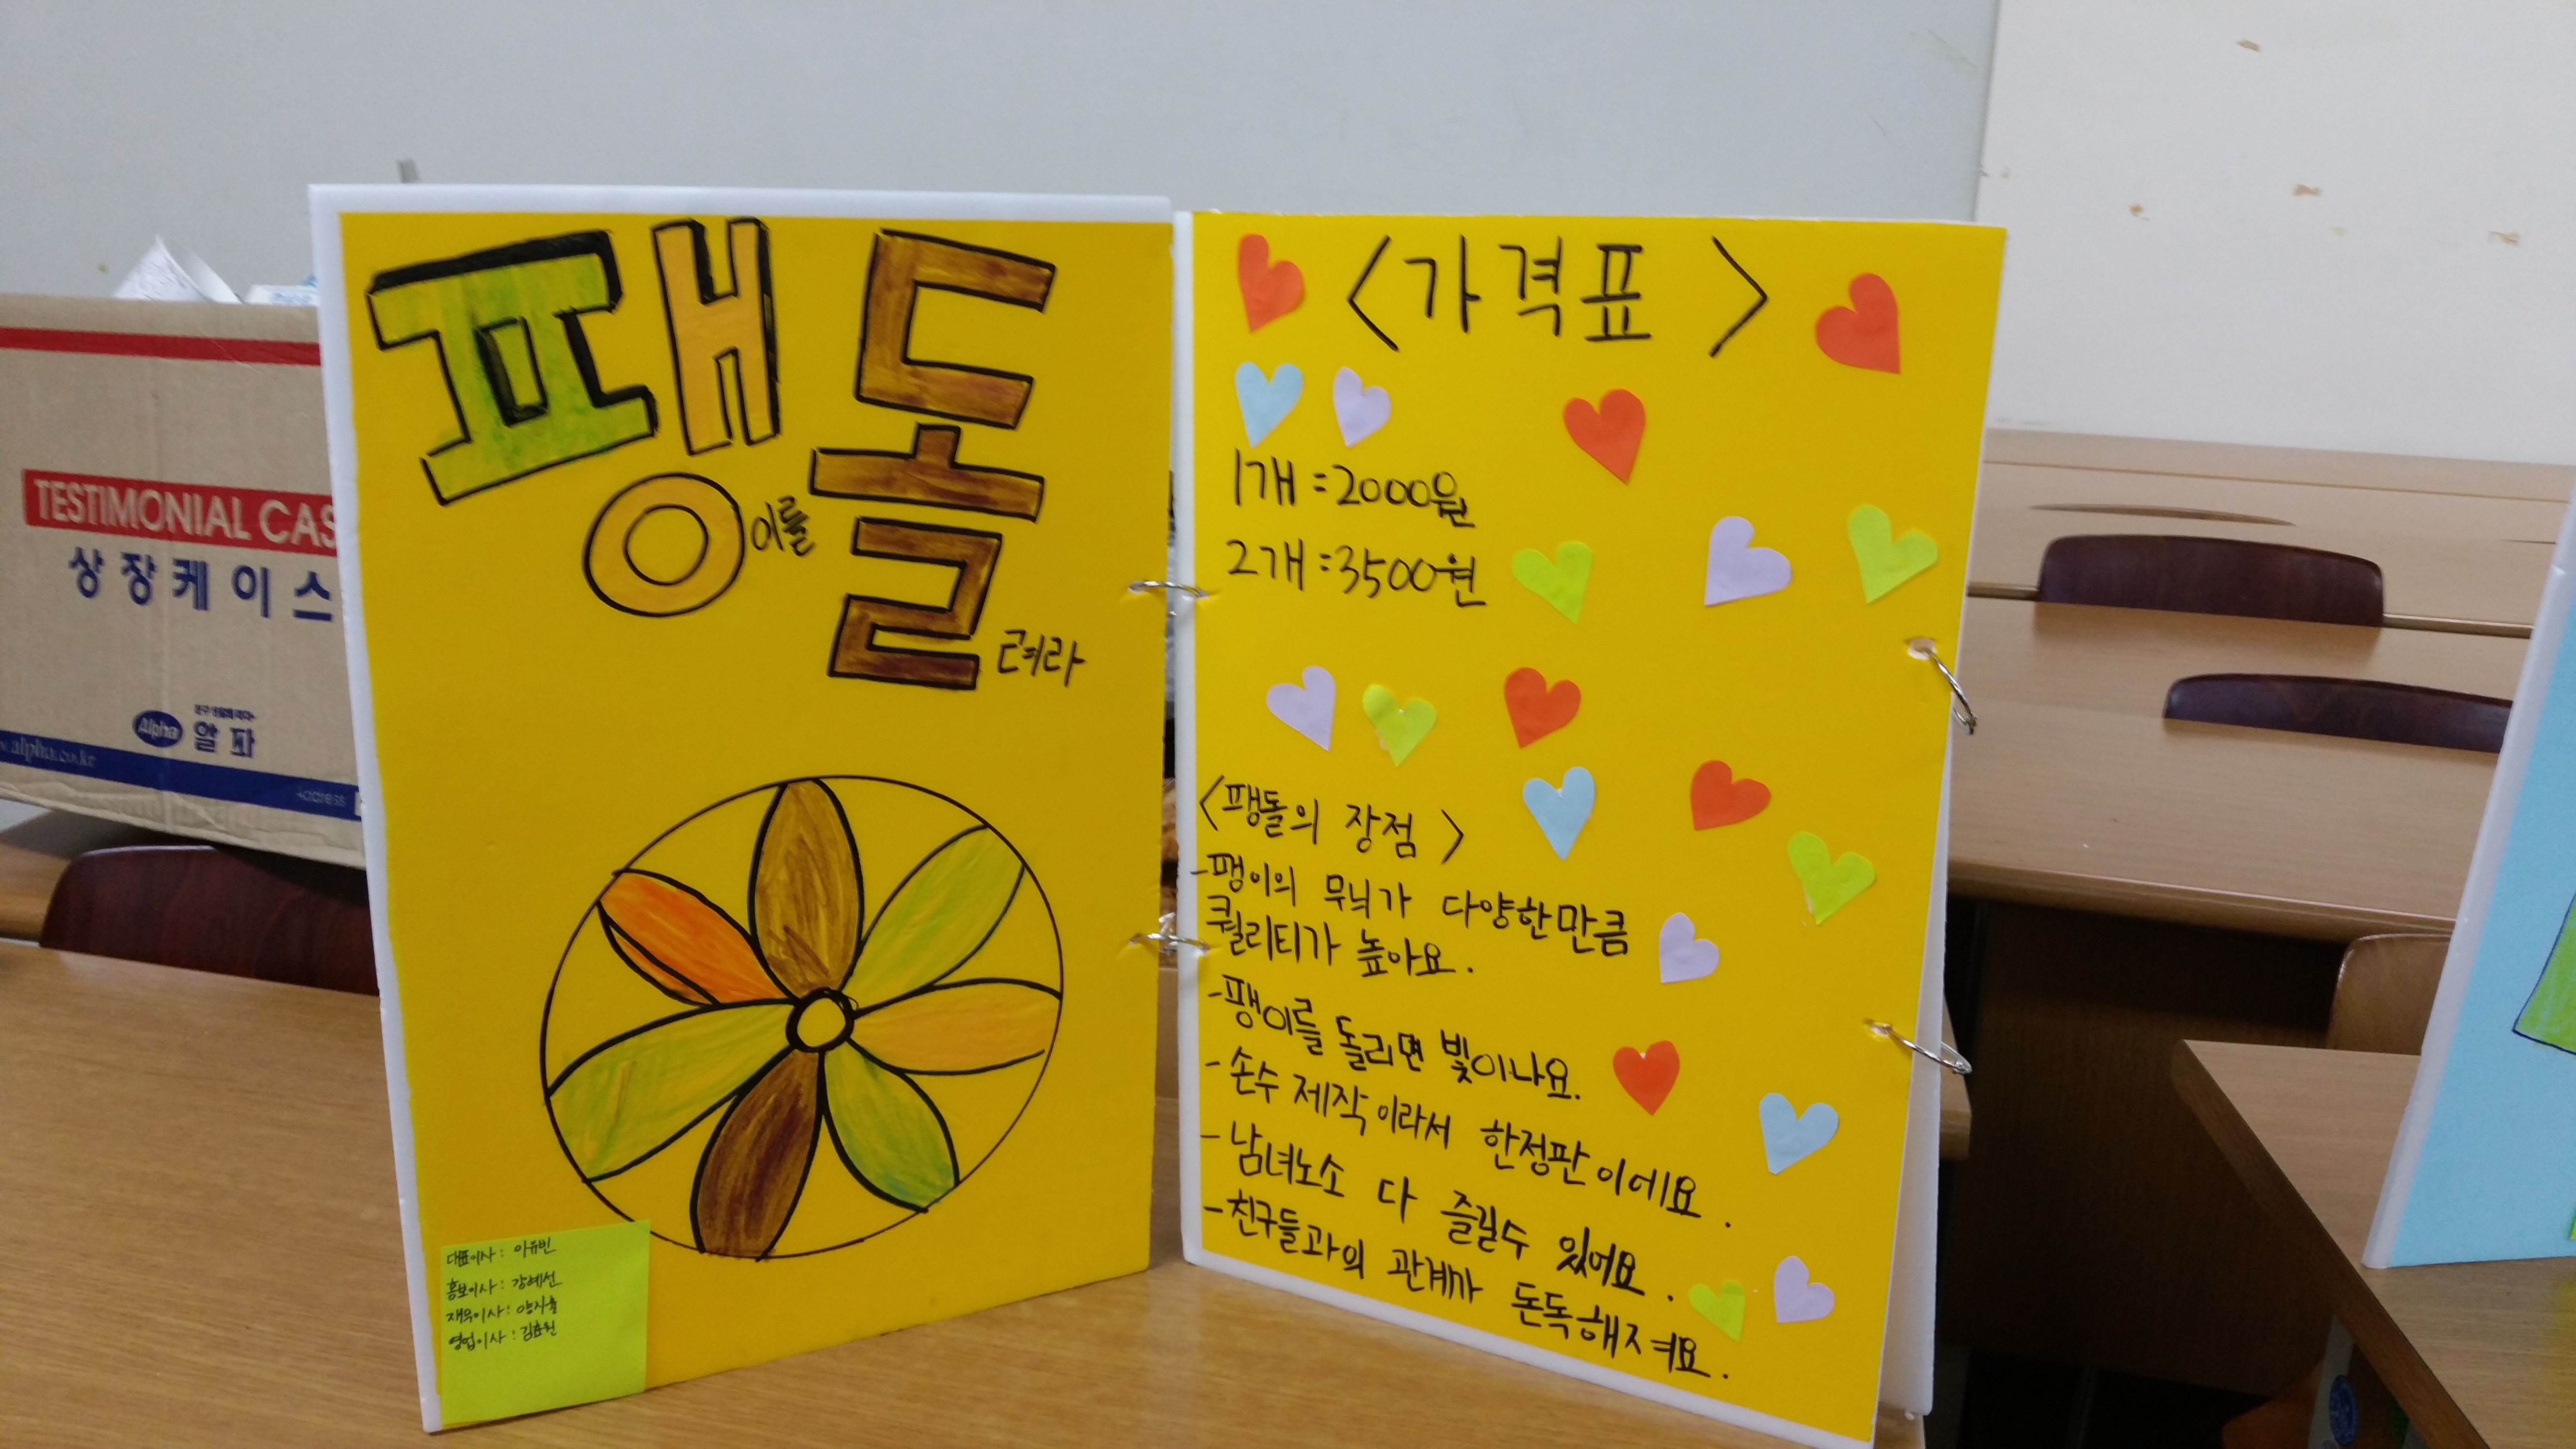 팽이를
돌려라
대표이사: 이유빈
홍보이사: 강예선
재무이사:
영업이사: 김효원
<가격표>
1개=2000원
2개=3500원
<팽돌의 장점>
-팽이의 무늬가 다양한만큼
퀄리티가 높아요.
-팽이를 돌리면 빛이나요.
-손수 제작이라서 한정판이에요.
-남녀노소 다 즐길수 있어요.
-친구들과의 관계가 돈독해져요.
TESTIMONIAL CAS
상장케이스
Alpha 알파
.alpha.co.kr
Address